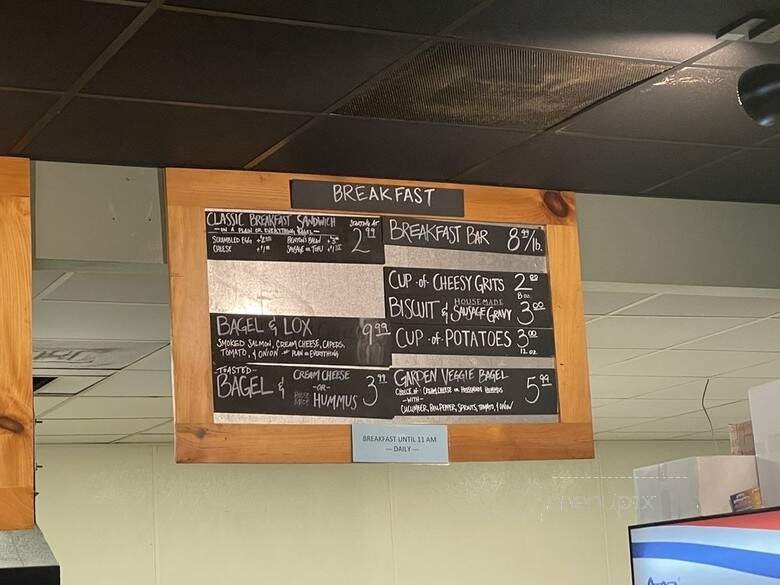 BREAKFAST
CLASSIC BREAKFAST SANDWICH
STARTING AT
2.99
— ON A PLAIN OR EVERYTHING BAGEL —
SCRAMBLED EGG
CHEESE
SAUSAGE OR TOFU
BAGEL & LOX 9.99
SMOKED SALMON, CREAM CHEESE, CAPERS,
TOMATO, & ONION PLAIN OR EVERYTHING
TOASTED
BAGEL & CREAM CHEESE
-OR-
HOUSE MADE HUMMUS 3.99
BREAKFAST BAR 8.99/lb.
CUP of CHEESY GRITS 2.00
8 oz.
BISCUIT & HOUSEMADE SAUSAGE GRAVY 3.00
CUP of POTATOES 3.00
12 oz.
GARDEN VEGGIE BAGEL 5.99
CHOICE of CREAM CHEESE OR HOUSEMADE HUMMUS
-WITH-
CUCUMBER, BELL PEPPER, SPROUTS, TOMATO, & ONION
BREAKFAST UNTIL 11 AM
— DAILY —
menupix